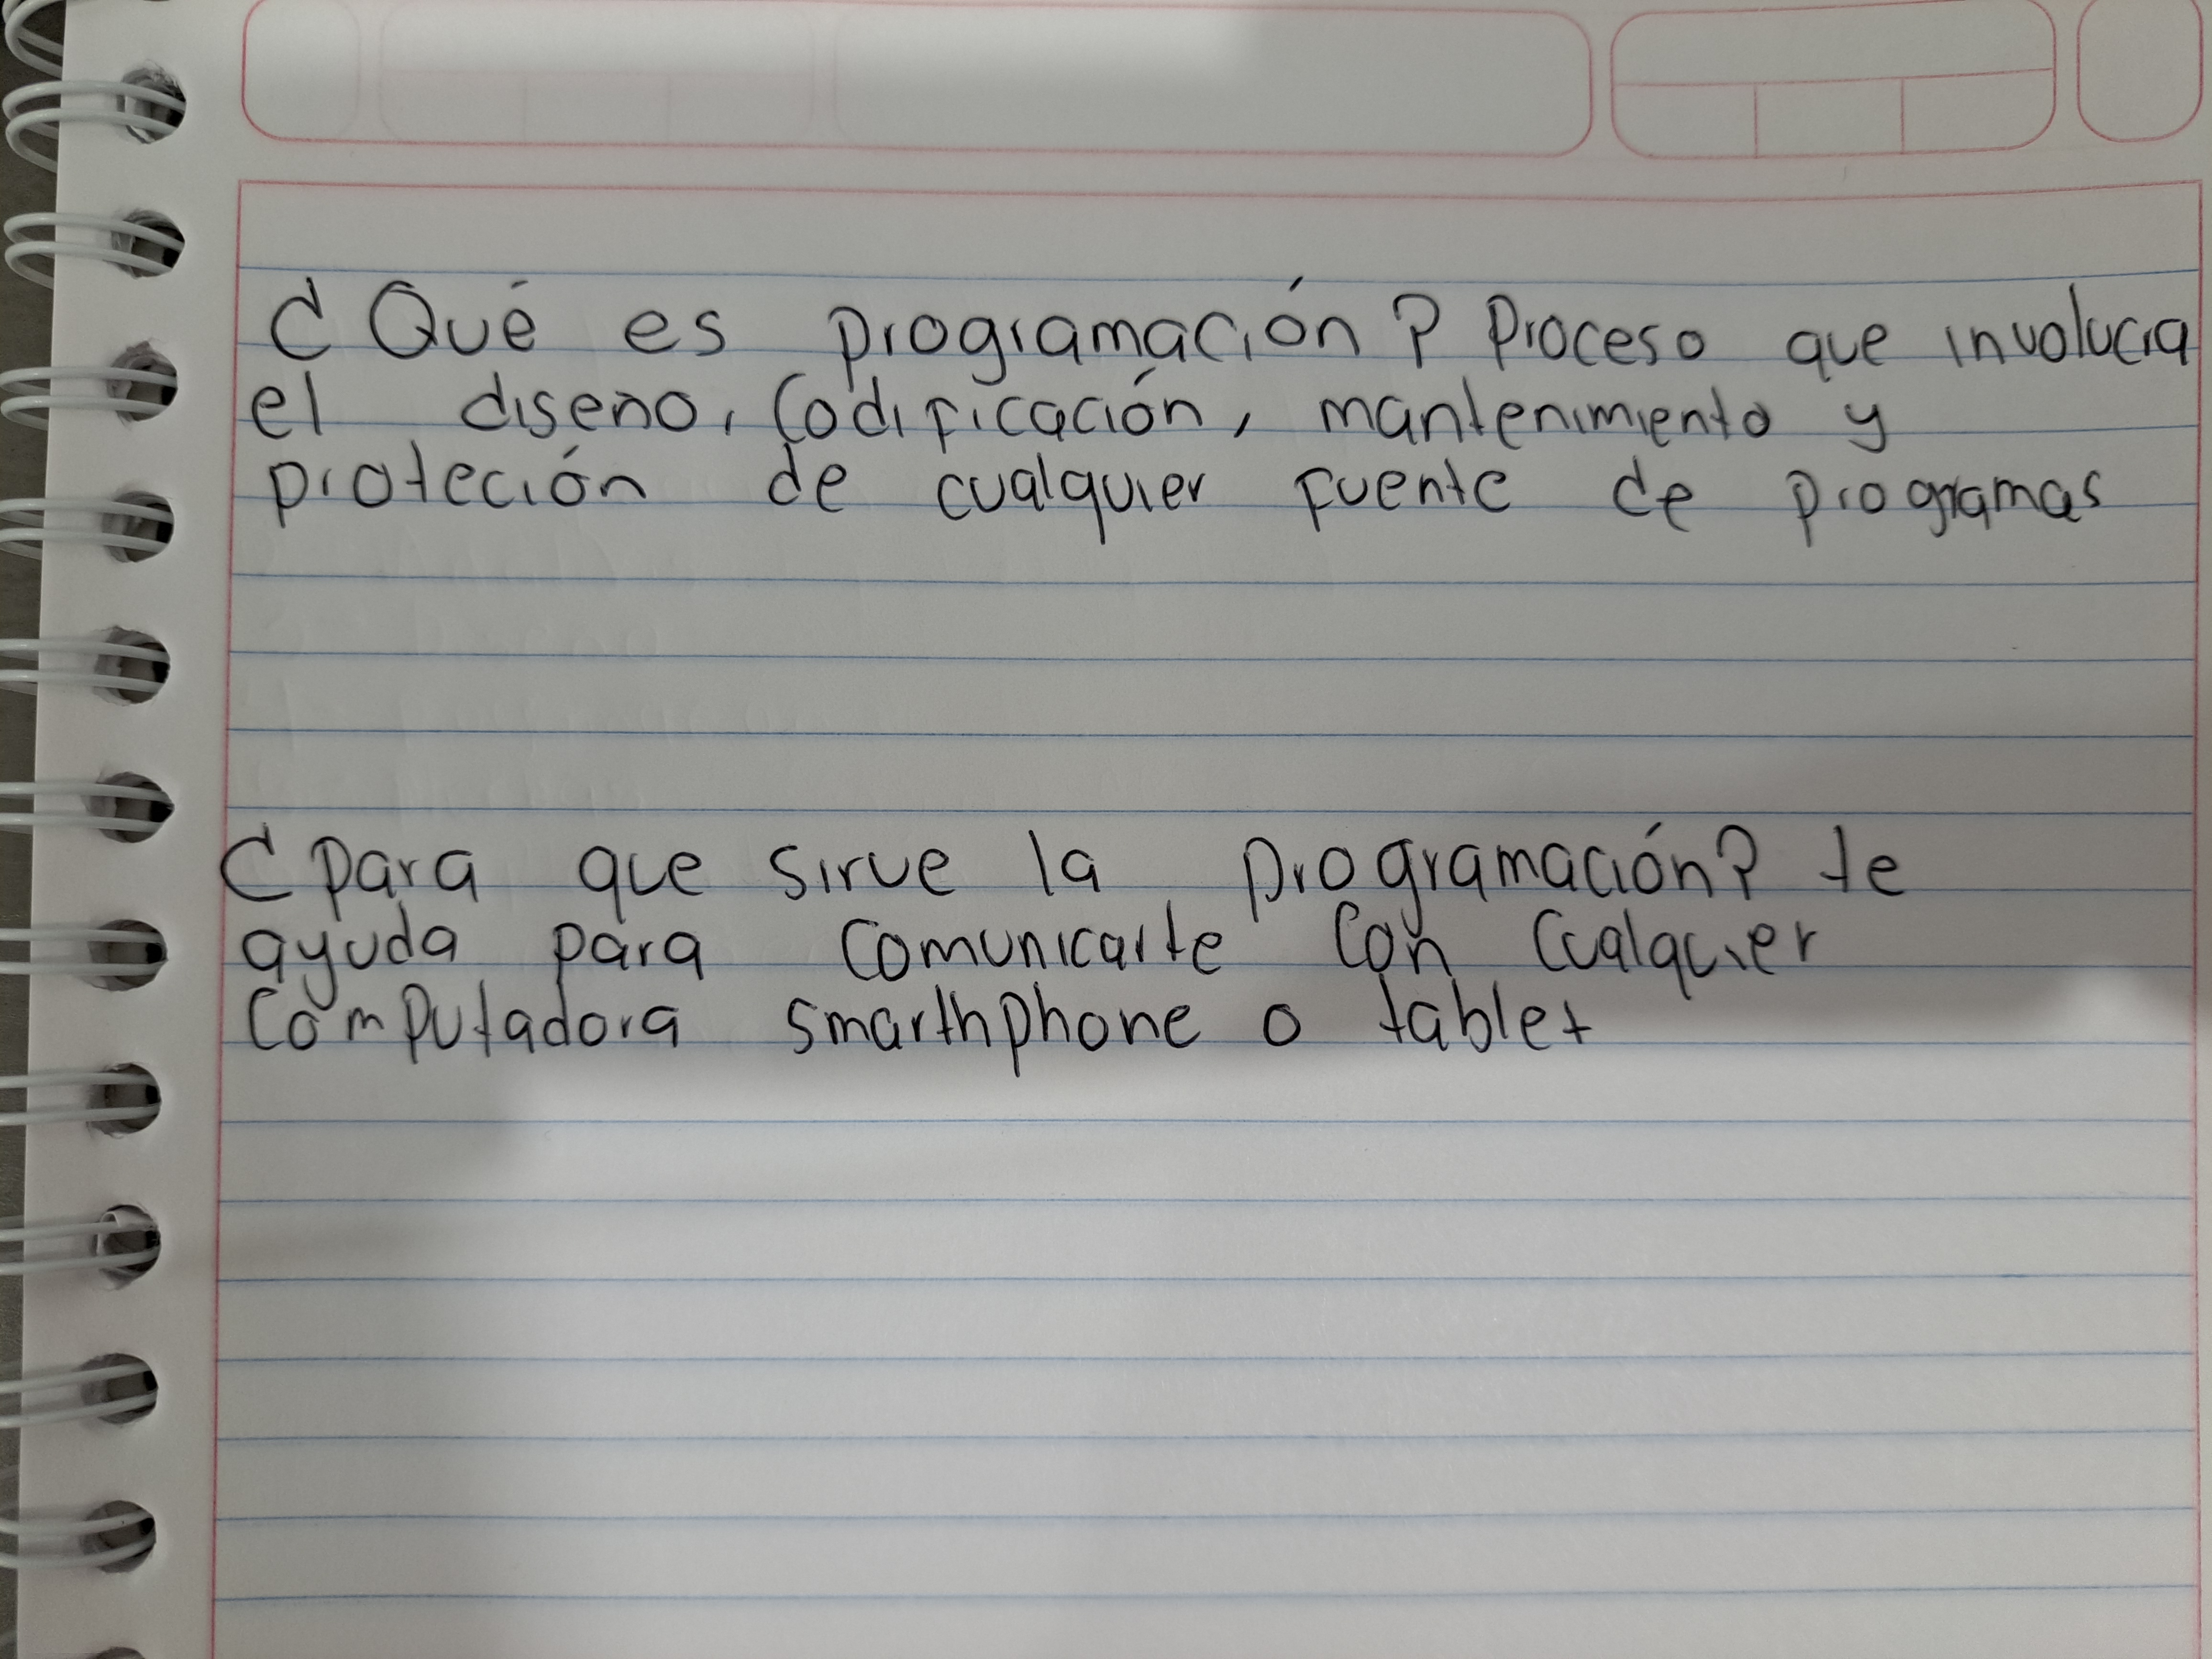 ¿Qué es programación? Proceso que involucra
el diseno, codificación, mantenimiento y
proteción de cualquier fuente de programas
¿para que sirve la programación? te
ayuda para comunicarte con cualquier
computadora smarthphone o tablet